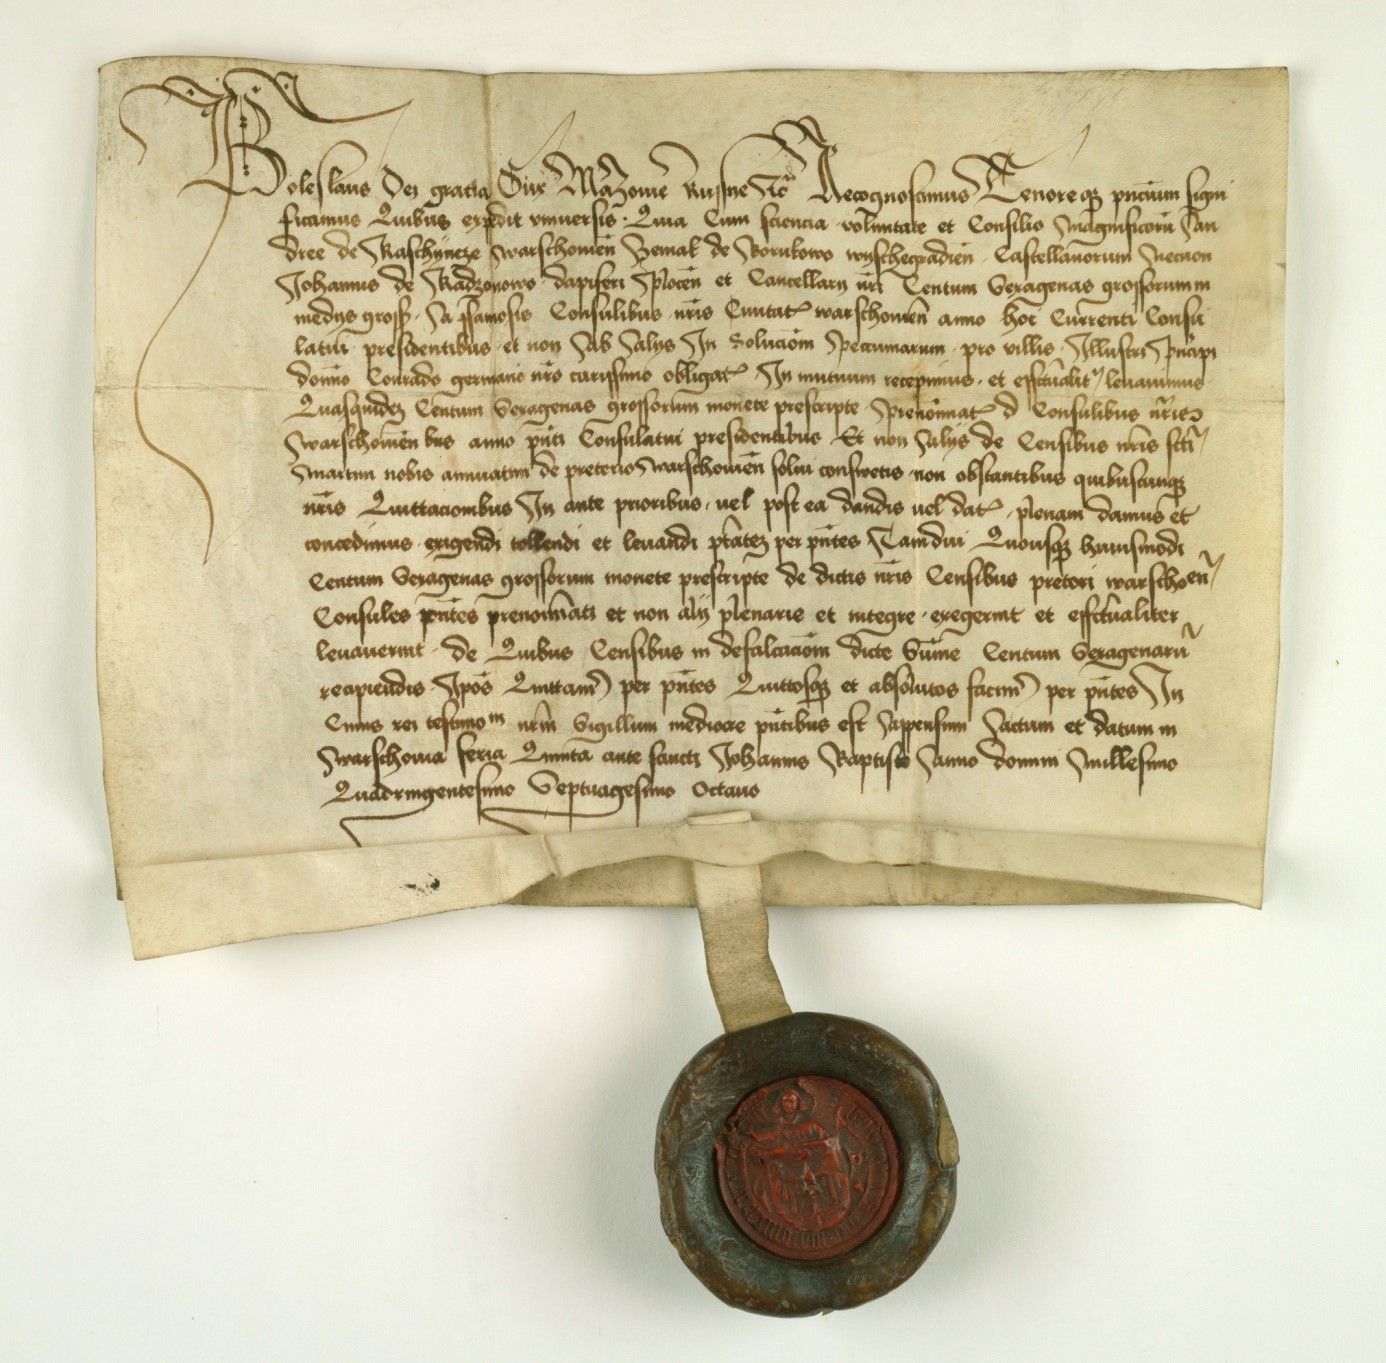 Boleslaus Dei gratia Dux Mazouie Russie etc̃ Recognoscimus Tenoreqꝫ pñcium signi
ficamus Quibus expedit vniuersis · Quia Cum sciencia voluntate et Consilio Magnificorũ An
dree de warschouieñ Zemak de Borukowo wyschegradieñ · Castellanorum Necnon
Johannis de Radzonowo dapiferi ploceñ et Cancellarij nr̃i Centum Sexagenas grossorum in
medijs gross̃ · A famosis Consulibus nr̃is Ciuitat̃ warschouieñ anno hoc Currenti Consu
latui presidentibus · et non ab alijs In Soluciom̃ peccuniarum · pro villis · Illustri principi
domino Conrado germano nr̃o carissimo obligat̃ · In mutuum recepimus · et effectualit̃ leuauimus
Quasquidẽ Centum Sexagenas grossorum monete prescripte prenominat̃ Consulibus nr̃is
warschouieñbus anno pñti Consulatui presidentibus Et non alijs de Censibus nr̃is scti
martini nobis annuatim de pretorio warschouieñ solui consuetis · non obstantibus quibuscunqꝫ
nr̃is Quittacionibus In ante prioribus · uel post ea dandis uel dat̃ · plenam damus et
concedimus · exigendi tollendi et leuandi ptãteꝫ per pñtes Tamdui Quousqꝫ huiusmodi
Centum Sexagenas grossorum monete prescripte de dictis nr̃is Censibus pretori warschoeñ
Consules pñtes prenominati et non alij plenarie et integre · exegerint et effectualiter
leuauerint · de Quibus Censibus in defalcaciom̃ dicte Sũme Centum Sexagenarũ
recipiendis Ipõs Quittam̃ per pñtes Quittosqꝫ et absolutos facim̃ per pñtes In
Cuius rei testimoᵐ nr̃m Sigillum mediocre pñtibus est appensum Actum et datum in
warschouia feria Quinta ante sancti Johannis Baptiste Anno domini Millesimo
Quadringentesimo Septuagesimo Octauo